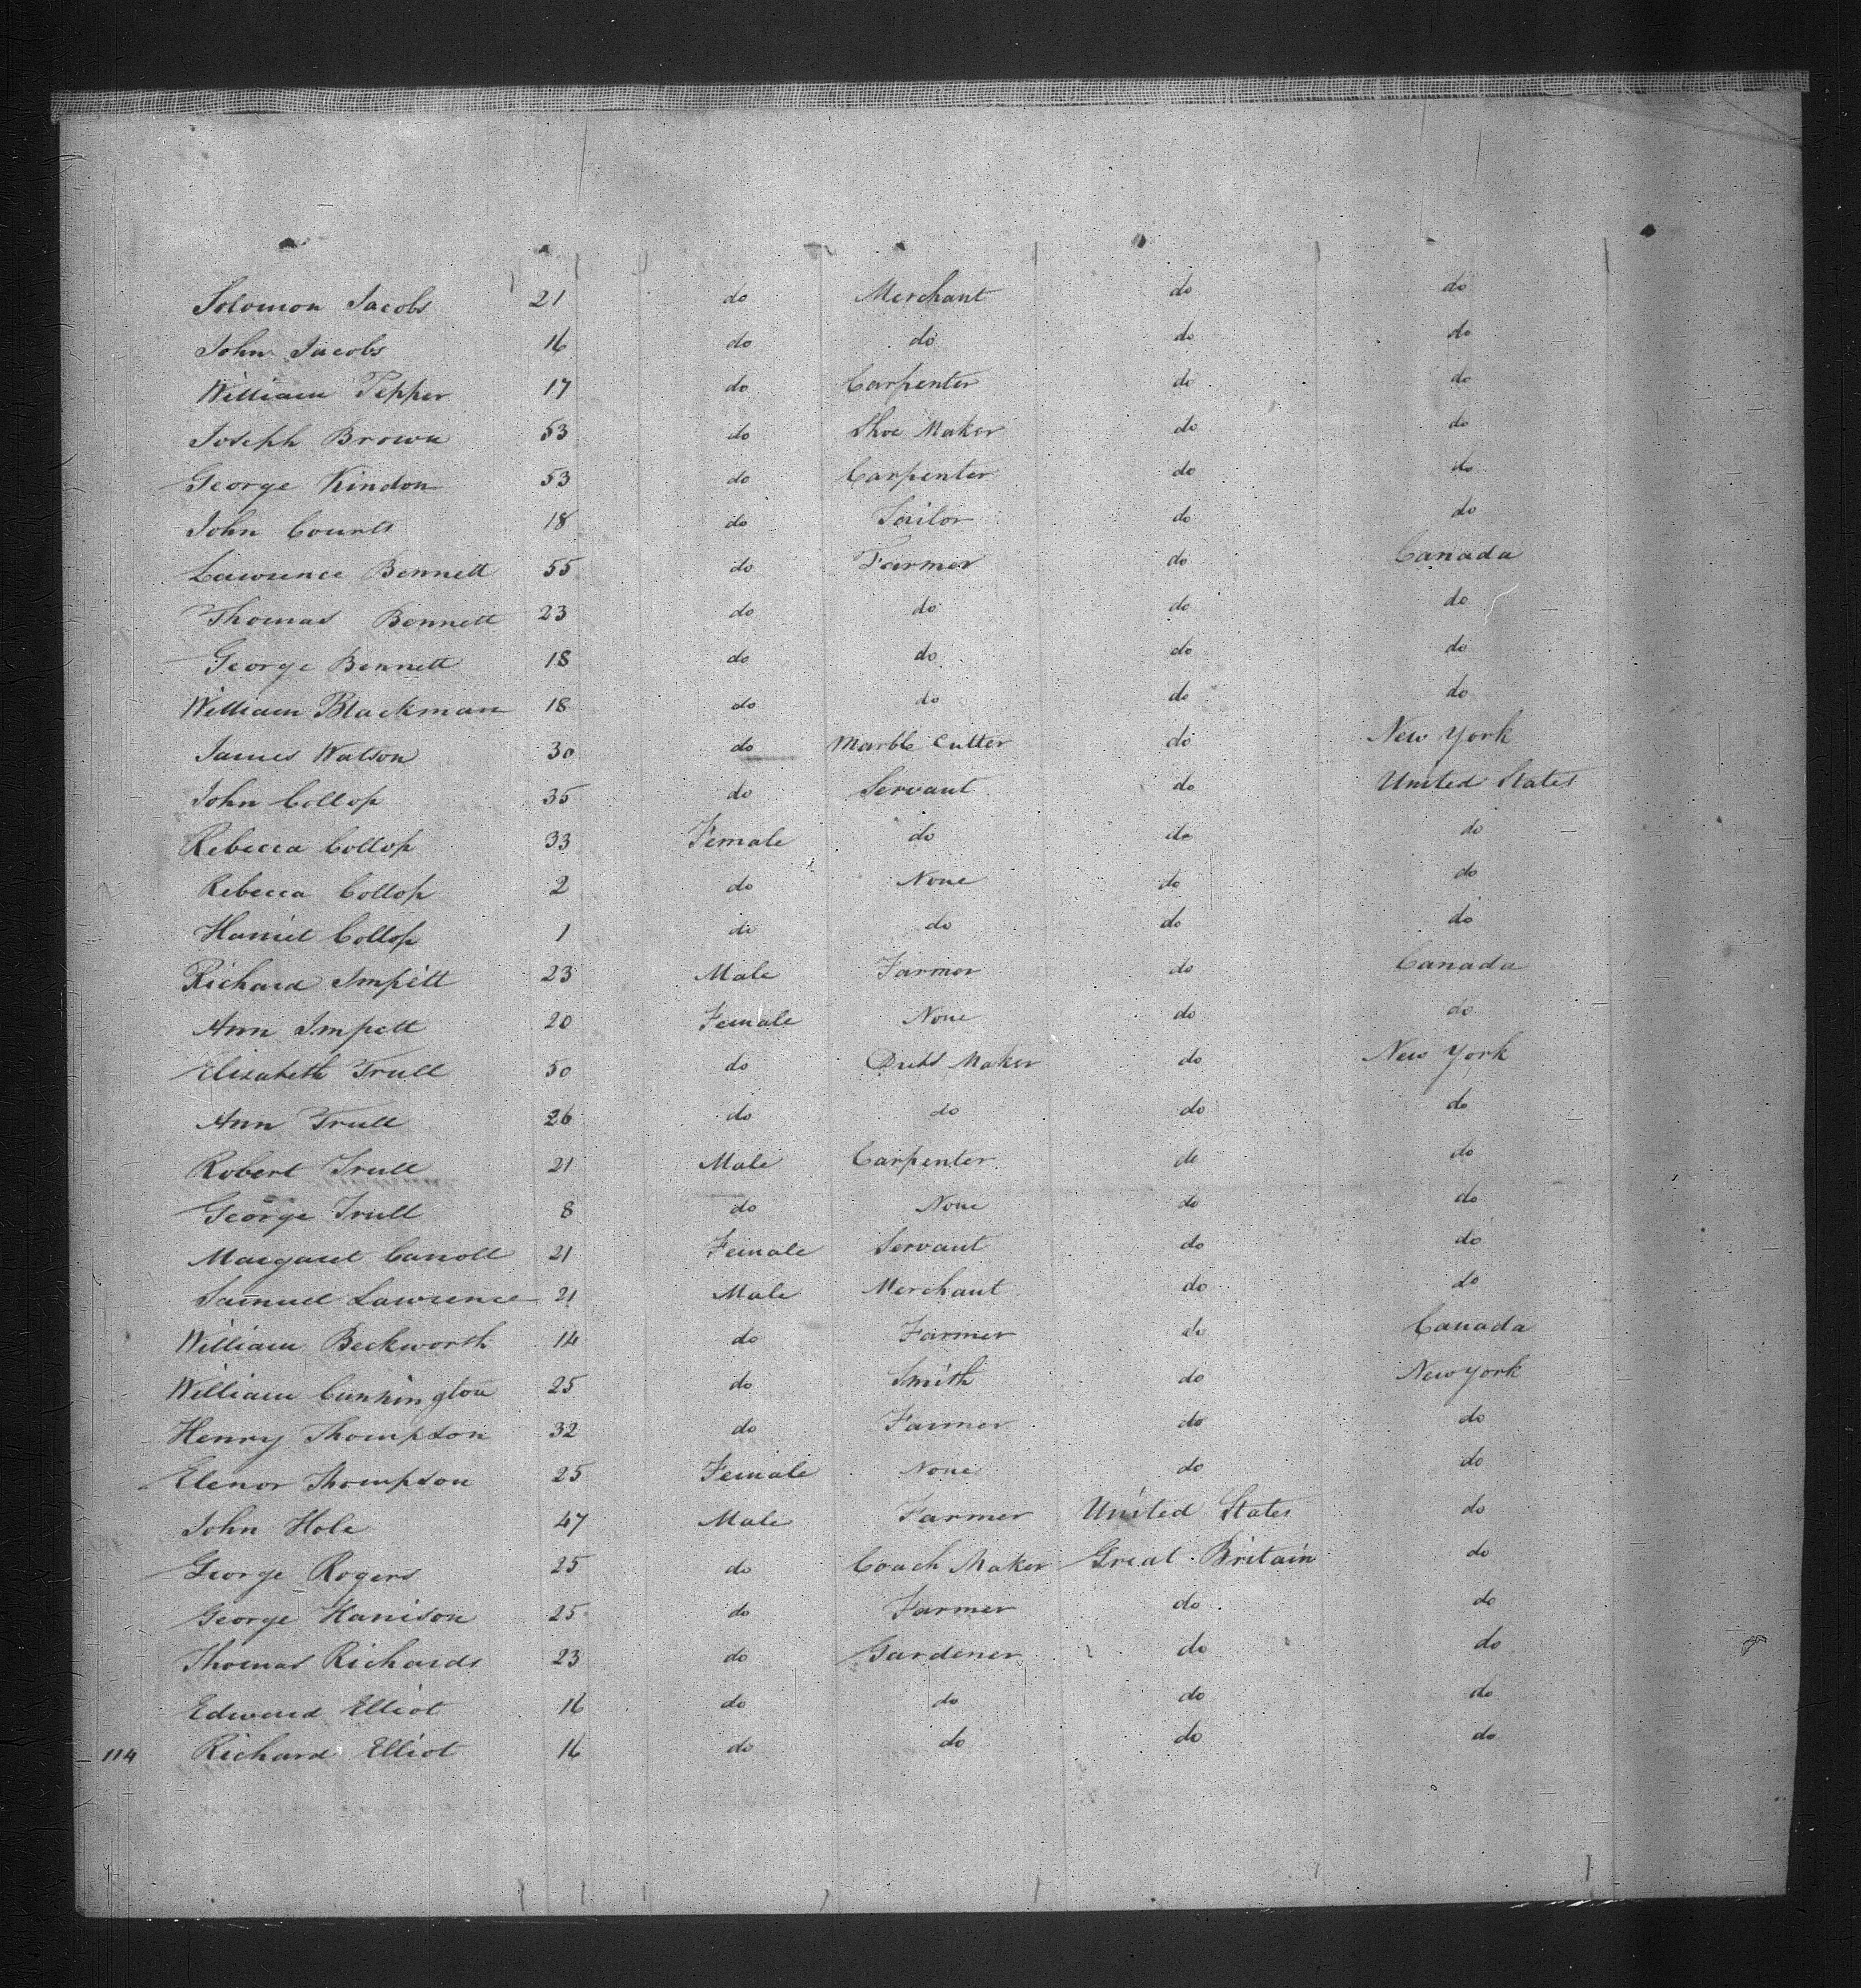 Solomon Jacobs 21 do Merchant do do
John Jacobs 16 do do do do
William Pepper 17 do Carpenter do do
Joseph Brown 53 do Shoe Maker do do
George Kindon 53 do Carpenter do do
John Counts 18 do Sailor do do
Lawrence Bennett 55 do Farmer do Canada
Thomas Bennett 23 do do do do
George Bennett 18 do do do do
William Blackman 18 do do do do
James Watson 30 do Marble Cutter do New York
John Collop 35 do Servant do United States
Rebecca Collop 33 Female do do do
Rebecca Collop 2 do None do do
Harriet Collop 1 do do do do
Richard Impett 23 Male Farmer do Canada
Ann Impett 20 Female None do do
Elizabeth Trull 50 do Dress Maker do New York
Ann Trull 26 do do do do
Robert Trull 21 Male Carpenter do do
George Trull 8 do None do do
Margaret Carroll 21 Female Servant do do
Samuel Lawrence 21 Male Merchant do do
William Beckworth 14 do Farmer do Canada
William Cunnington 25 do Smith do New York
Henry Thompson 32 do Farmer do do
Elenor Thompson 25 Female None do do
John Hole 47 Male Farmer United States do
George Rogers 25 do Coach Maker Great Britain do
George Harrison 25 do Farmer do do
Thomas Richards 23 do Gardener do do
Edward Elliot 16 do do do do
114 Richard Elliot 16 do do do do